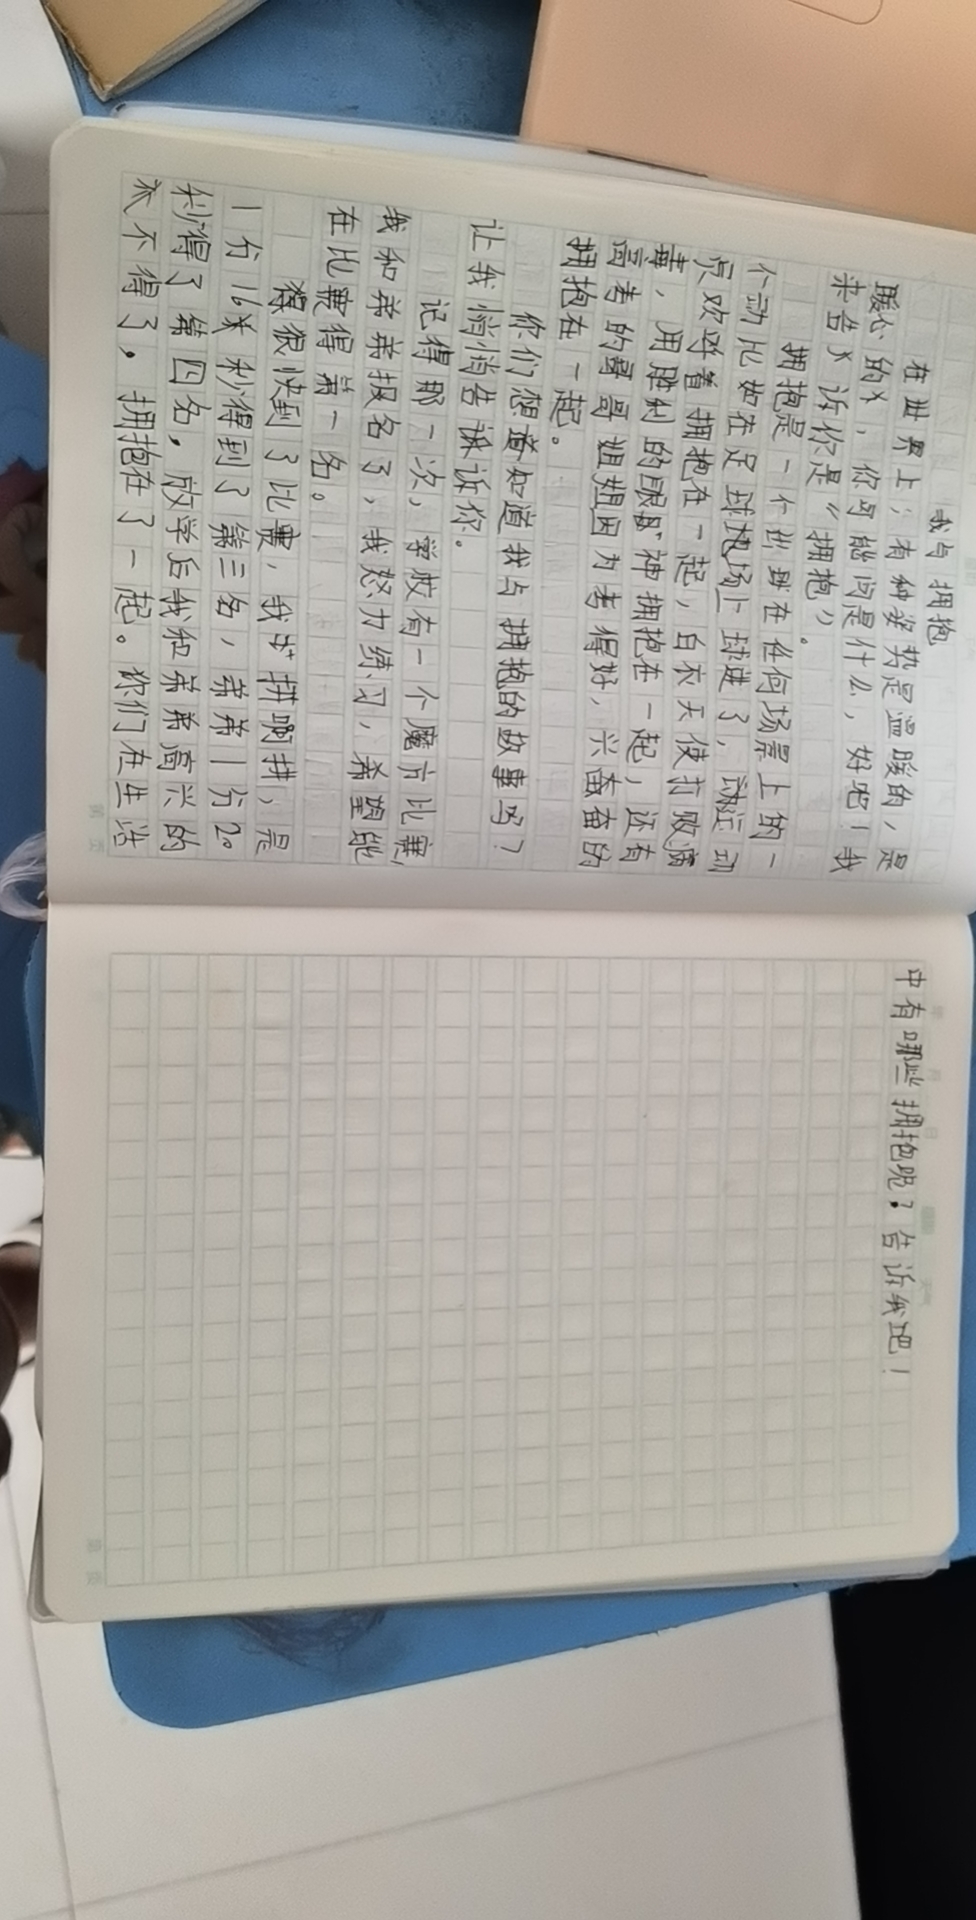 我与拥抱
在世界上，有种姿势是温暖的，是
暖心的，你可能问是什么，好吧！我
来告诉你是“拥抱”。
拥抱是一个出现在任何场景上的一
个动比如在足球场上球进了，运动
员欢呼着拥抱在一起，白衣天使打败病
毒，用胜利的眼神拥抱在一起，还有
高考的哥哥姐姐因为考得好，兴奋奋的
拥抱在一起。
你们想知道我与拥抱的故事吗？
让我悄悄告诉你。
记得那一次，学校有一个魔方比赛，
我和弟弟报名了，我怒力练习，希望能
在比赛得第一名。
很快到了比赛，我拼啊拼，是
1分16秒得到了第三名，弟弟1分20
秒得了第四名，放学后我和弟弟高兴的
不得了，拥抱在了一起。你们在生活
中有哪些拥抱呢？告诉我吧！